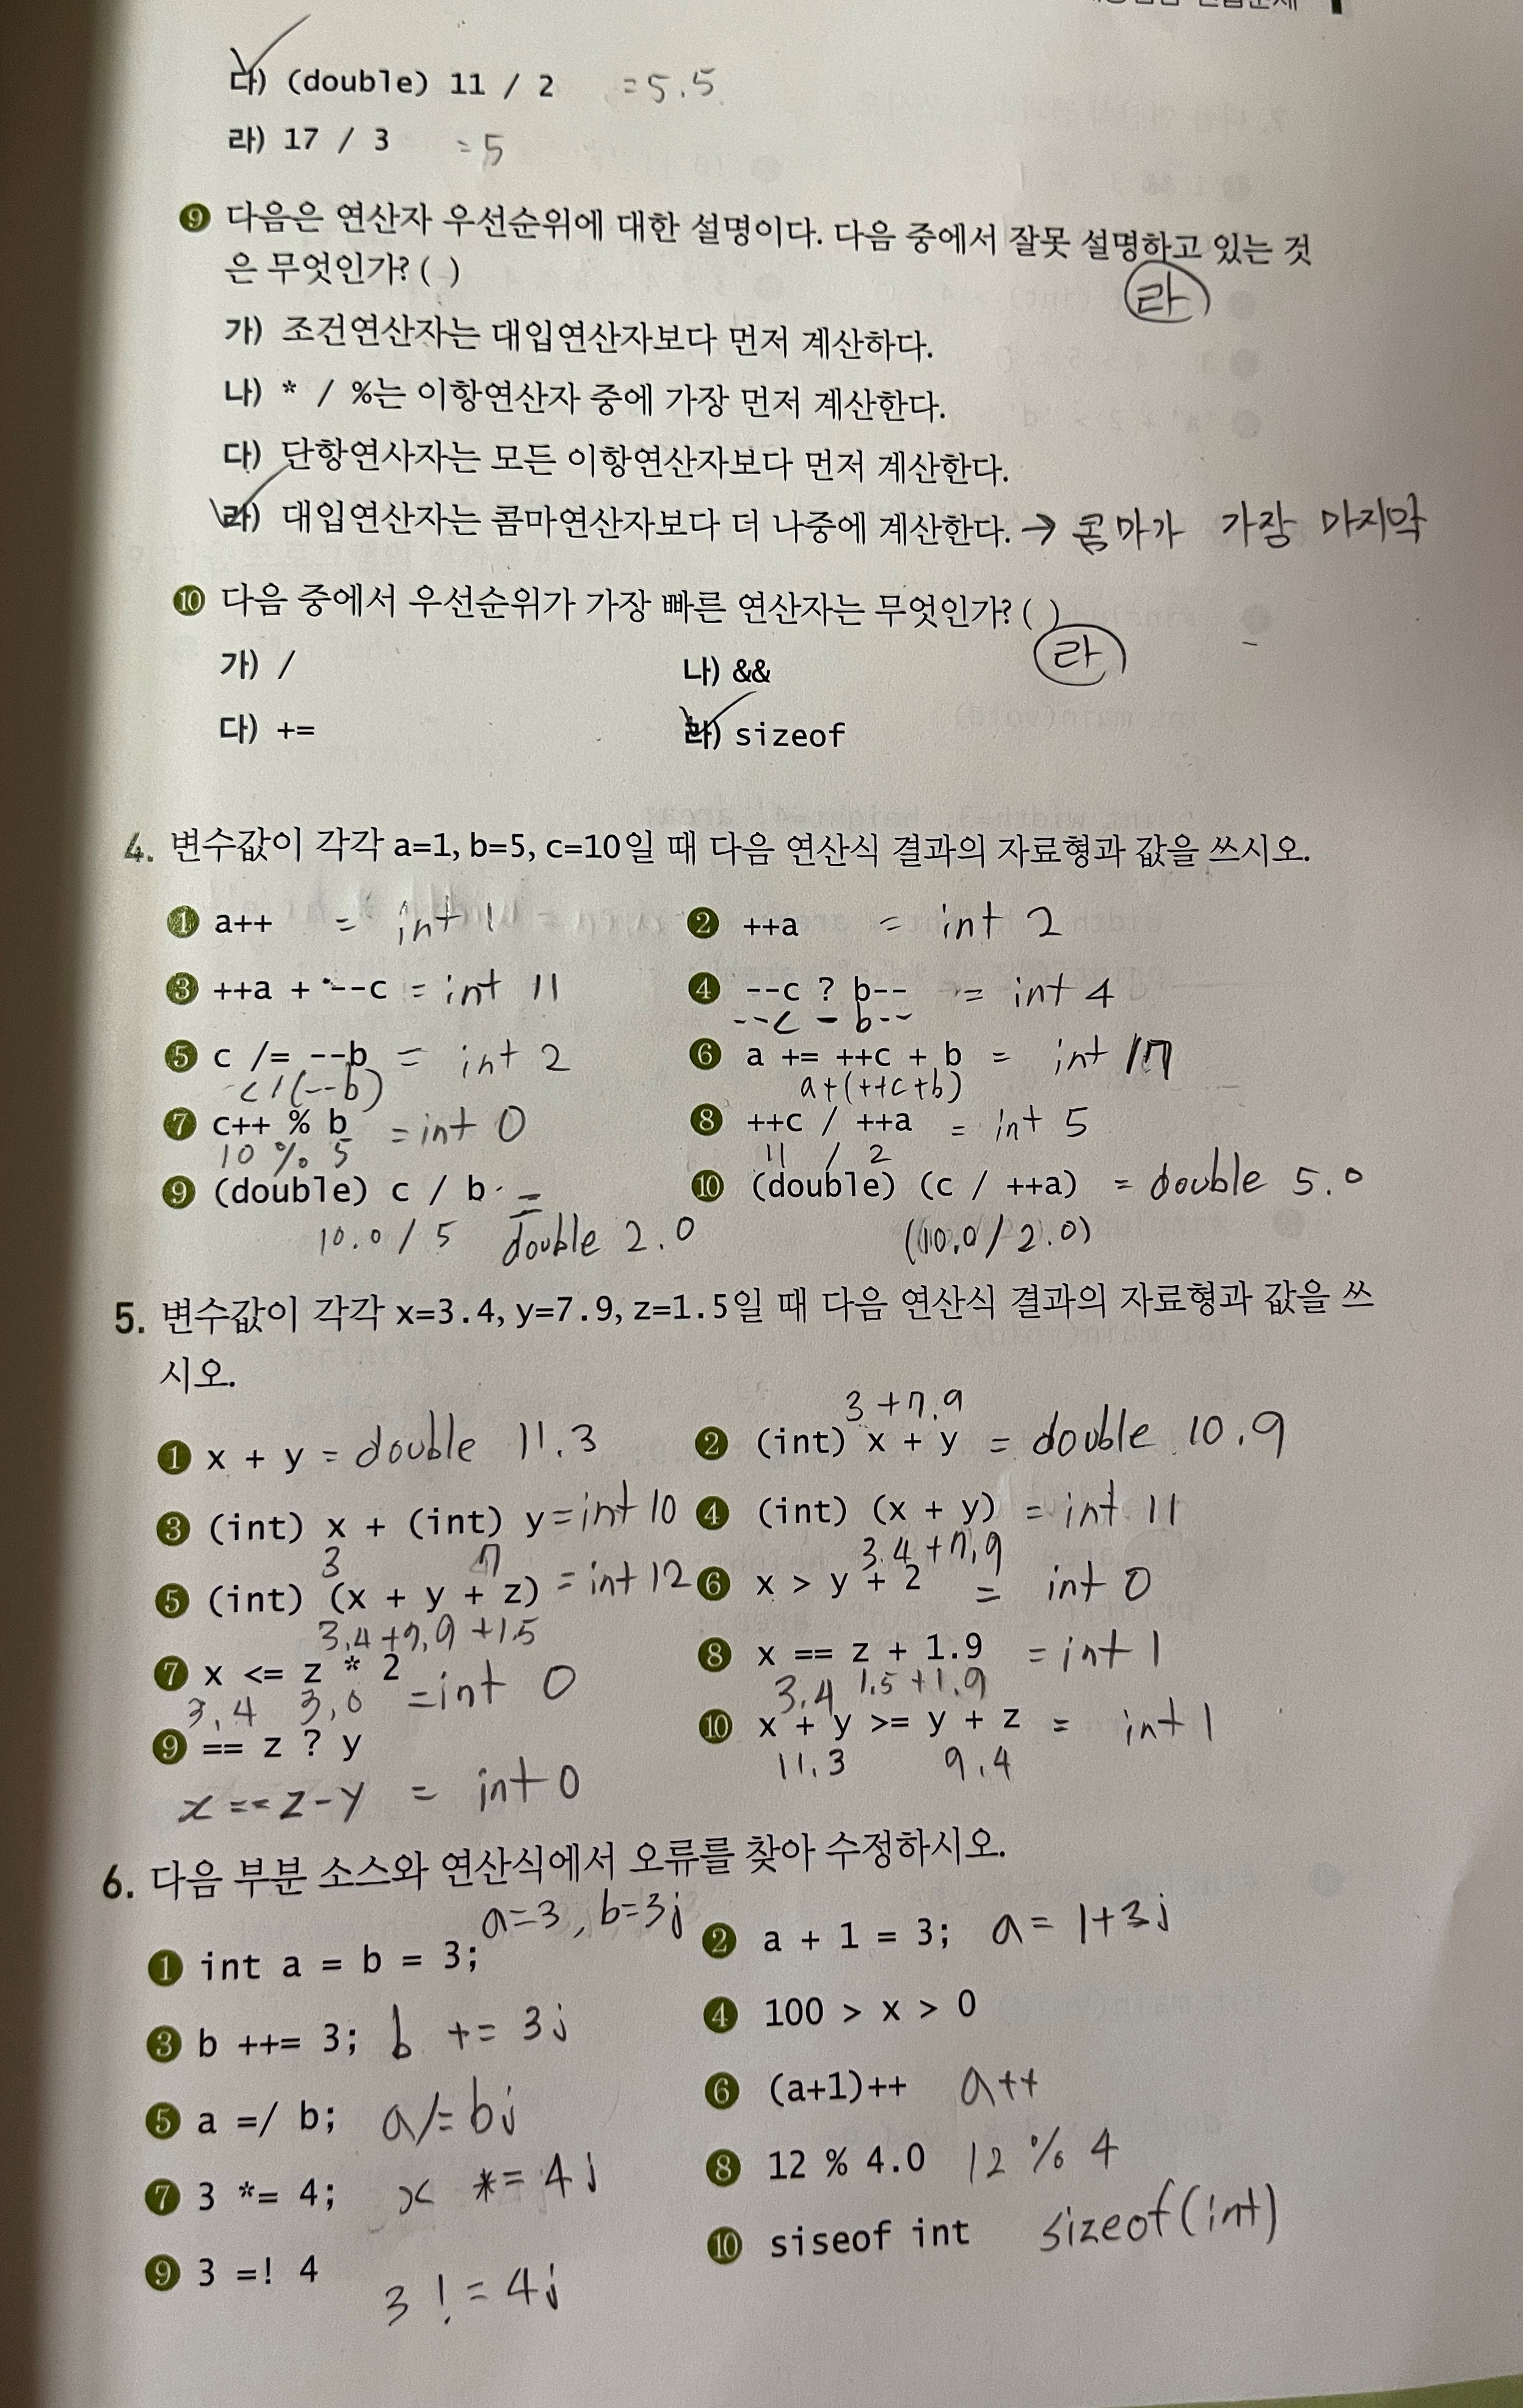 다) (double) 11 / 2 = 5.5
라) 17 / 3 = 5
9 다음은 연산자 우선순위에 대한 설명이다. 다음 중에서 잘못 설명하고 있는 것
은 무엇인가? ( ) 라
가) 조건연산자는 대입연산자보다 먼저 계산하다.
나) * / %는 이항연산자 중에 가장 먼저 계산한다.
다) 단항연사자는 모든 이항연산자보다 먼저 계산한다.
라) 대입연산자는 콤마연산자보다 더 나중에 계산한다. → 콤마가 가장 마지막
10 다음 중에서 우선순위가 가장 빠른 연산자는 무엇인가? ( ) 라
가) / 나) &&
다) += 라) sizeof
4. 변수값이 각각 a=1, b=5, c=10일 때 다음 연산식 결과의 자료형과 값을 쓰시오.
1 a++ = int 1 2 ++a = int 2
3 ++a + --c = int 11 4 --c ? b-- = int 4
--c - b--
5 c /= --b = int 2 6 a += ++c + b = int 17
c/(--b) a+(++c+b)
7 c++ % b = int 0 8 ++c / ++a = int 5
10 % 5 11 / 2
9 (double) c / b = 10 (double) (c / ++a) = double 5.0
10.0 / 5 double 2.0 (10.0 / 2.0)
5. 변수값이 각각 x=3.4, y=7.9, z=1.5일 때 다음 연산식 결과의 자료형과 값을 쓰
시오.
3+7.9
1 x + y = double 11.3 2 (int) x + y = double 10.9
3 (int) x + (int) y = int 10 4 (int) (x + y) = int 11
3 7 3.4+7.9
5 (int) (x + y + z) = int 12 6 x > y + 2 = int 0
3.4+7.9+1.5
7 x <= z * 2 = int 0 8 x == z + 1.9 = int 1
3.4 3.0 3.4 1.5+1.9
9 == z ? y 10 x + y >= y + z = int 1
x == z-y = int 0 11.3 9.4
6. 다음 부분 소스와 연산식에서 오류를 찾아 수정하시오.
1 int a = b = 3; a=3, b=3; 2 a + 1 = 3; a = 1+3;
3 b ++= 3; b += 3; 4 100 > x > 0
5 a =/ b; a/=b; 6 (a+1)++ a++
7 3 *= 4; x *= 4; 8 12 % 4.0 12 % 4
9 3 =! 4 3 != 4; 10 siseof int sizeof(int)